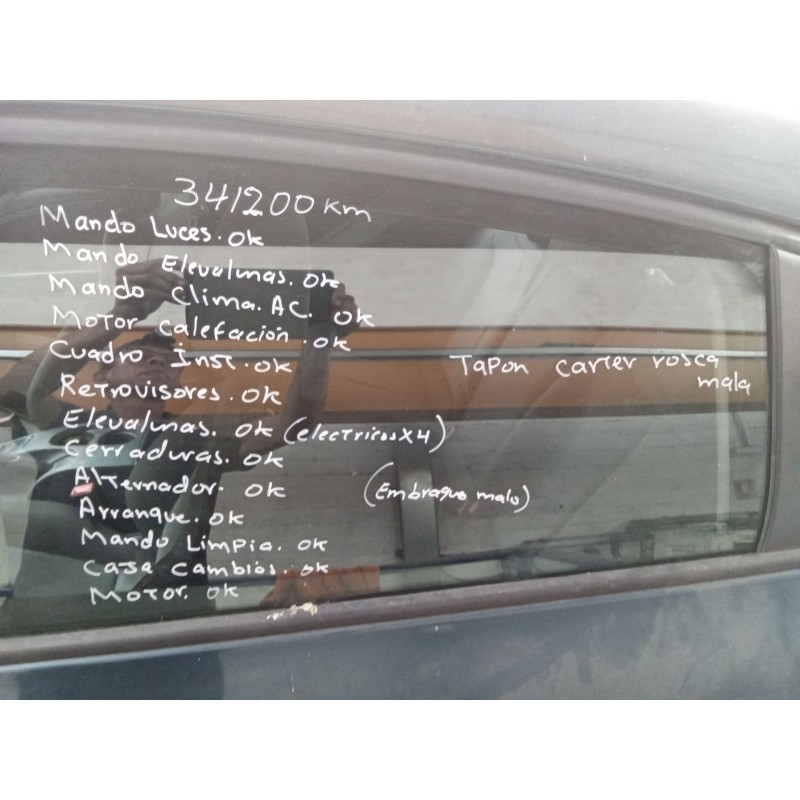 341200 Km
Mando Luces. ok
Mando Elevalunas. ok
Mando Clima. AC. ok
Motor Calefación. ok
Cuadro Inst. ok
Retrovisores. ok
Elevalunas. ok (electricos X4)
Cerraduras. ok
Alternador. ok
Arranque. ok
Mando Limpia. ok
Caja Cambios. ok
Motor. ok
Tapon carter rosca
mala
(Embrague malo)